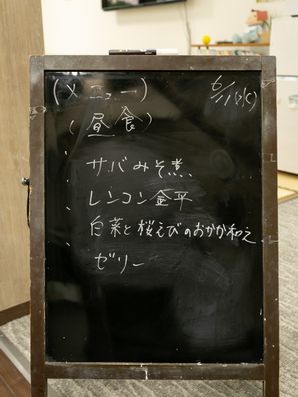 (メニュー)
(昼食)
サバみそ煮
レンコン金平
白菜と桜えびのおかか和え
ゼリー